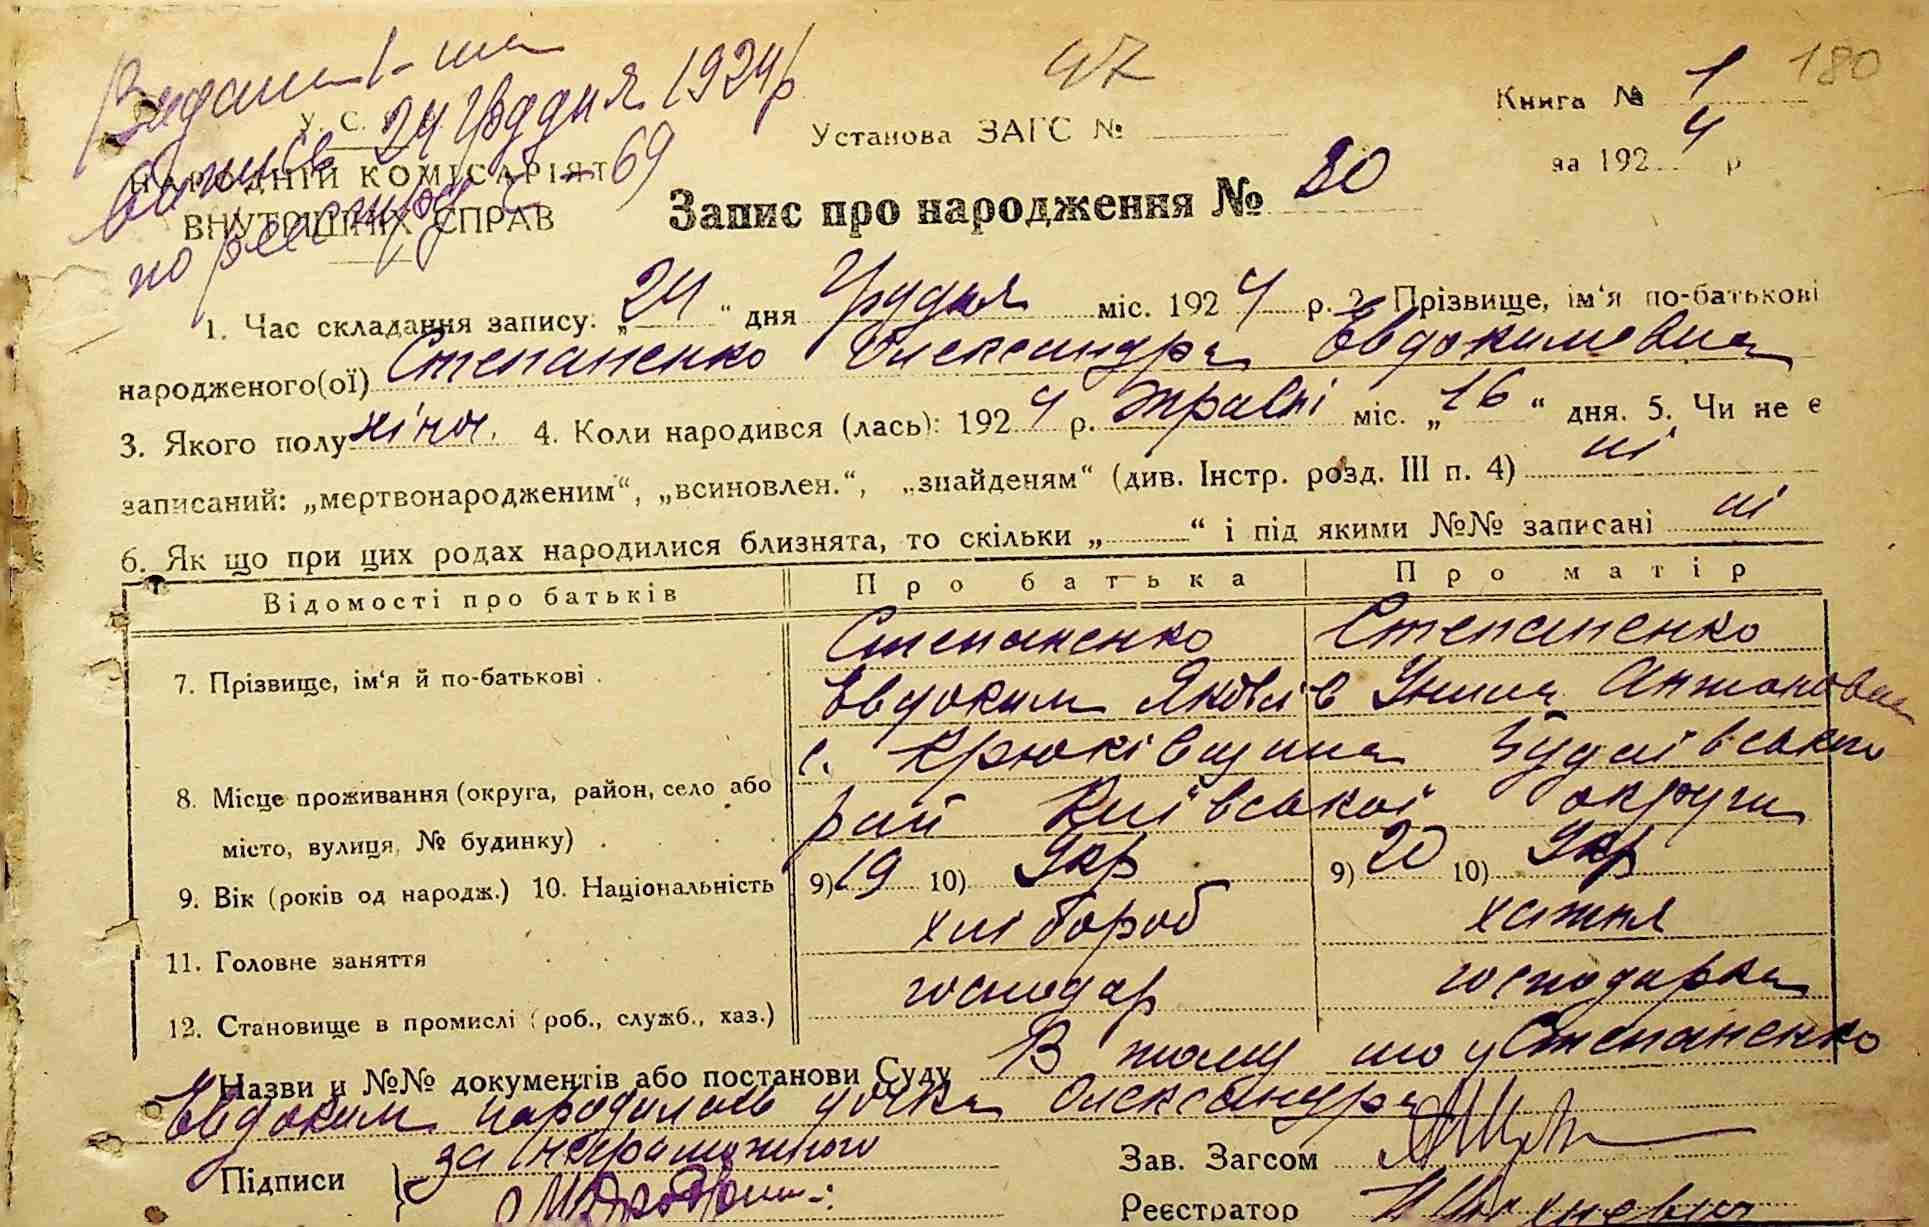 47
180
Видани 1-ша
виписъ 24 грудня 1924 р
по реєстру
69
У. С.
НАРОДНІЙ КОМІСАРІЯТ
ВНУТРІШНІХ СПРАВ
Установа ЗАГС №
Книга № 1
за 1924 р
Запис про народження № 80
1. Час складання запису: „24“ дня Грудня міс. 1924 р. 2. Прізвище, ім‘я по-батькові
народженого(ої) Степаненко Олександра Евдокимовна
3. Якого полу жіноч. 4. Коли народився (лась): 1924 р. травні міс. „16“ дня. 5. Чи не є
записаний: „мертвонародженим“, „всиновлен.“, „знайденям“ (див. Інстр. розд. III п. 4) ні
6. Як що при цих родах народилися близнята, то скільки „ “ і під якими №№ записані ні
Відомості про батьків Про батька Про матір
7. Прізвище, ім‘я й по-батькові . Степаненко Степаненко
Евдоким Яковлів Антоновна
8. Місце проживання (округа, район, село або с. Крюківщина Будаівського
місто, вулиця, № будинку) . рай Київської округи
9. Вік (років од народж.) 10. Національність 9) 19 10) Укр 9) 20 10) Укр
11. Головне заняття хлібороб хатня
12. Становище в промислі (роб., служб., хаз.) господар господарка
Назви й №№ документів або постанови Суду В тому що у Степаненко
Евдоким народилась дочка Олександра
Підписи за неграмотного
Зав. Загсом
Реєстратор